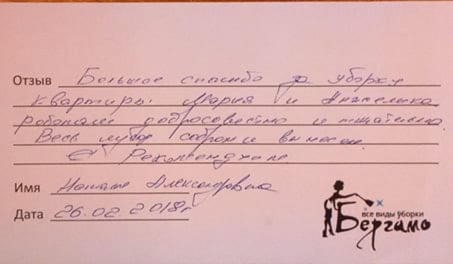 Отзыв Большое спасибо за уборку
квартиры. Мария и Анжелика
работали добросовестно и тщательно.
Весь мусор собран и вынесен.
Рекомендую
Имя Наталья Александровна
Дата 26.02.2018г
все виды уборки
Бергамо